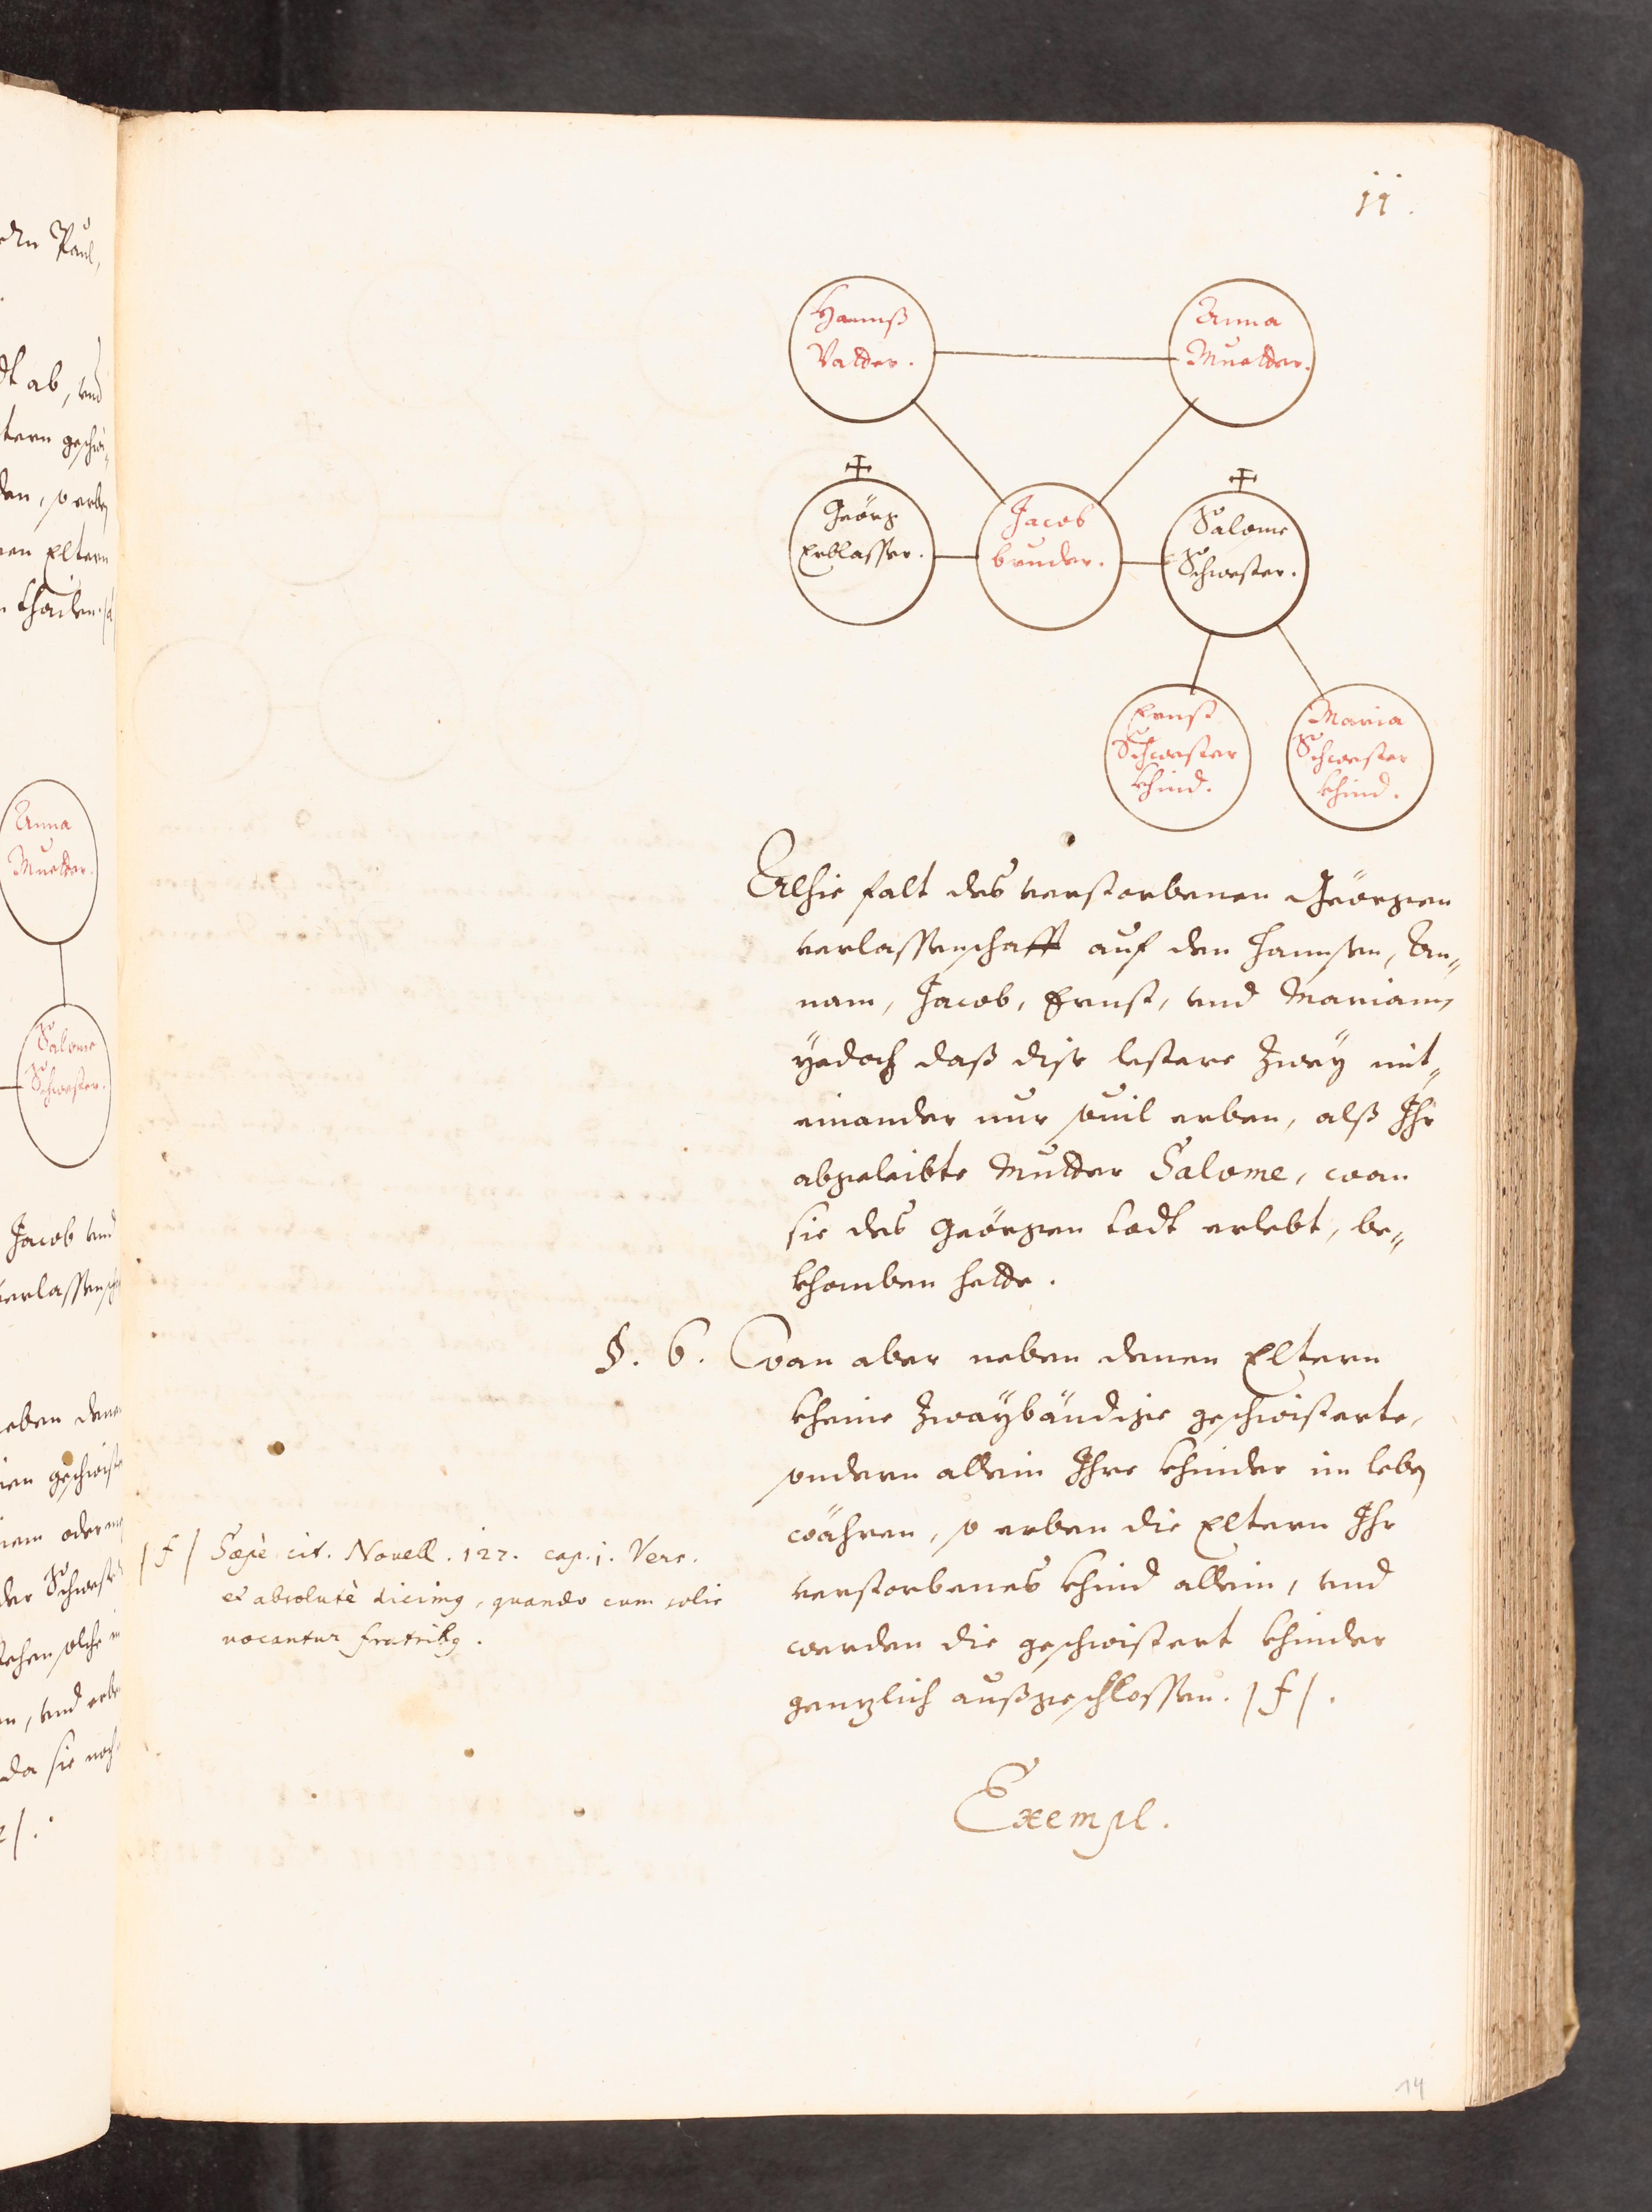 11.
Hannß
Vatter.
Anna
Muetter.
Geörg
Erblasser.
Jacob
bruder.
Salome
Schwester.
Ernst
Schwester
khind.
Maria
Schwester
khind.
Alhie falt des verstorbenen Geörgen
verlassenschafft auf den Hannsen, An„
nam, Jacob, Ernst, vnd Mariam,
yedoch daß dise lestere zway mit„
einander nur souil erben, alß Ihr
abgeleibte Mutter Salome, wan
sie des Geörgen todt erlebt, be„
khomben hette.
§. 6. Wan aber neben denen Eltern
kheine zwaybändige geschwisterte,
sondern allein Ihre khinder im leben
währen, so erben die Eltern Ihr
verstorbenes khind allein, vnd
werden die geschwistert khinder
genzlich außgeschlossen. /f/.
/f/ Sæpè cit. Novell. 127. cap. 1. Vers.
et absolutè dicimus, quando cum solis
vocantur fratribus.
Exempl.
14
Anna
Muetter.
Salome
Schwester.
Paul,
ab, vnd
Eltern
Jacob vnd
oder
da sie noch